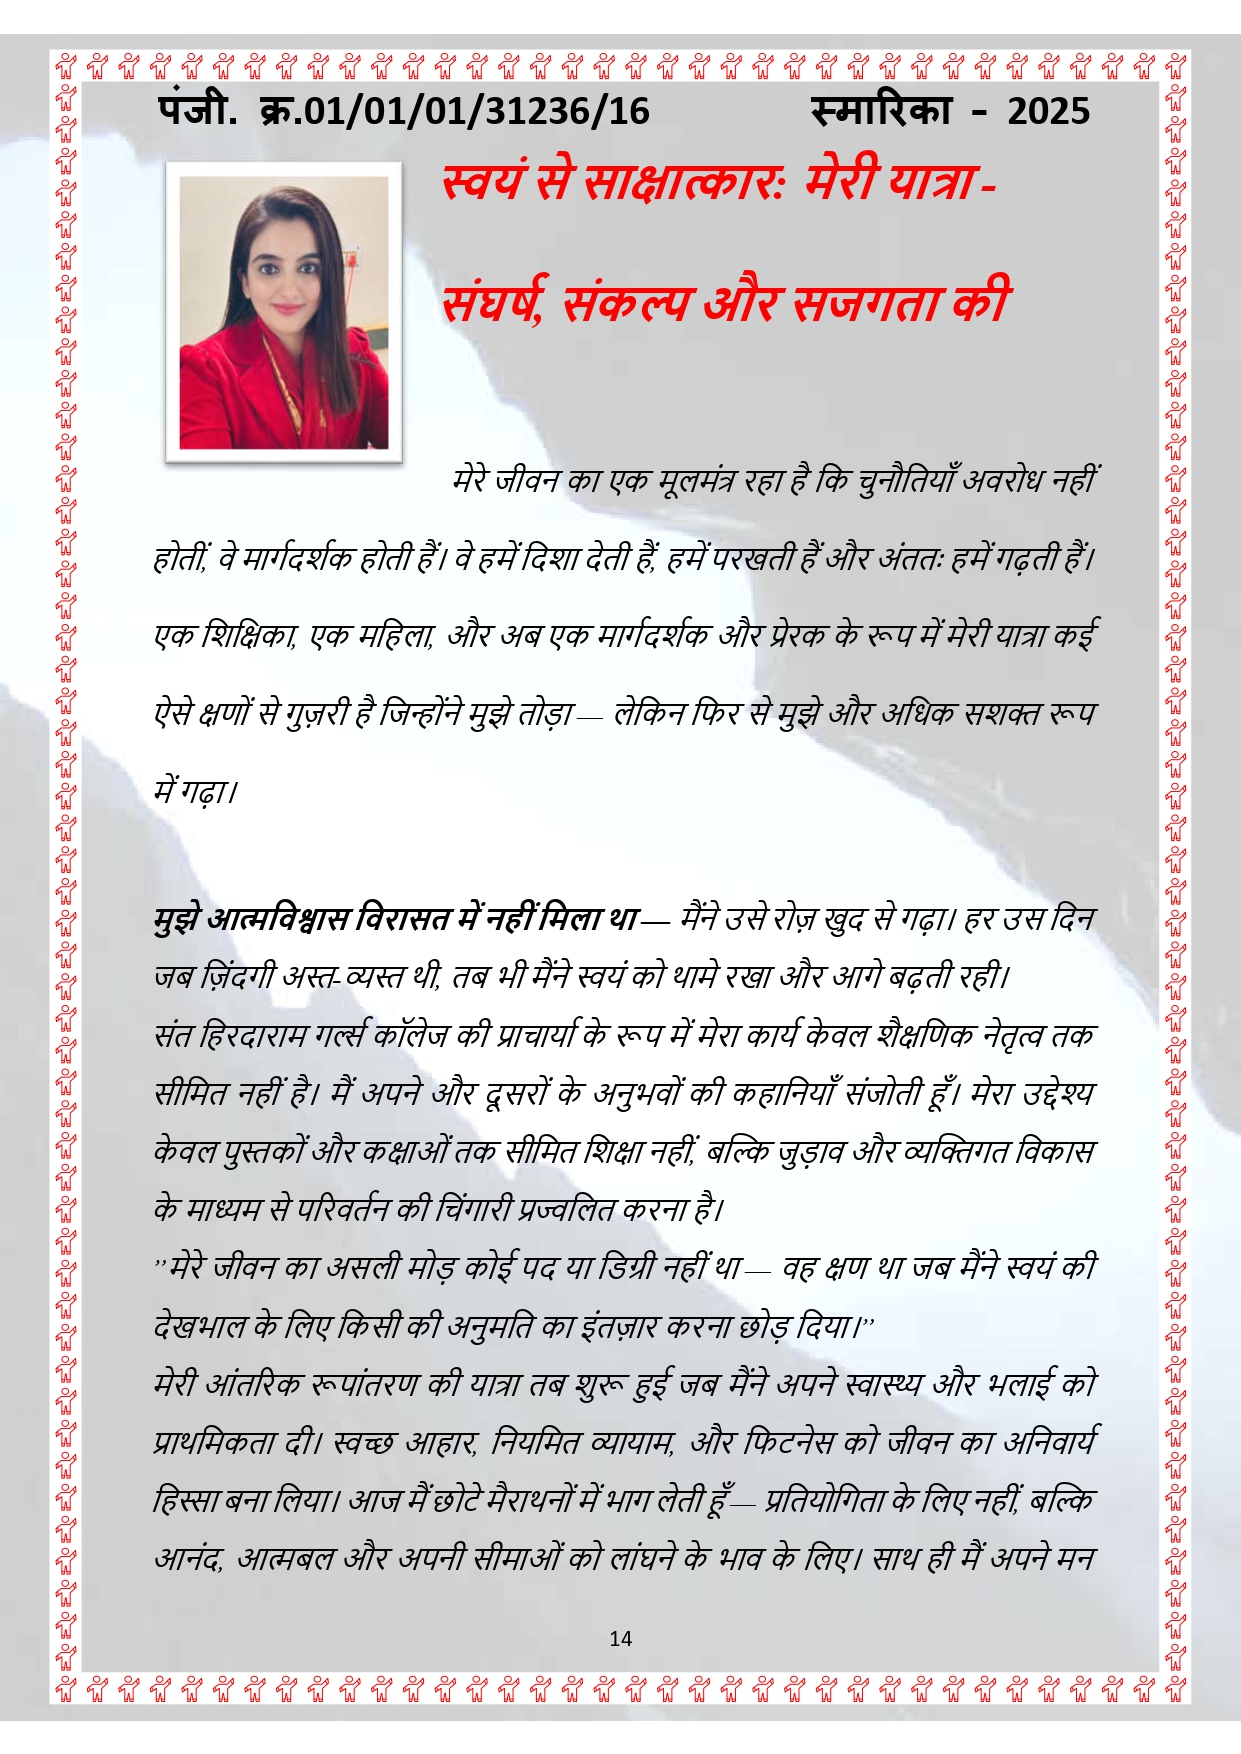 पंजी. क्र.01/01/01/31236/16 स्मारिका - 2025
स्वयं से साक्षात्कार: मेरी यात्रा -
संघर्ष, संकल्प और सजगता की
मेरे जीवन का एक मूलमंत्र रहा है कि चुनौतियाँ अवरोध नहीं
होतीं, वे मार्गदर्शक होती हैं। वे हमें दिशा देती हैं, हमें परखती हैं और अंततः हमें गढ़ती हैं।
एक शिक्षिका, एक महिला, और अब एक मार्गदर्शक और प्रेरक के रूप में मेरी यात्रा कई
ऐसे क्षणों से गुज़री है जिन्होंने मुझे तोड़ा — लेकिन फिर से मुझे और अधिक सशक्त रूप
में गढ़ा।
मुझे आत्मविश्वास विरासत में नहीं मिला था — मैंने उसे रोज़ खुद से गढ़ा। हर उस दिन
जब ज़िंदगी अस्त-व्यस्त थी, तब भी मैंने स्वयं को थामे रखा और आगे बढ़ती रही।
संत हिरदाराम गर्ल्स कॉलेज की प्राचार्या के रूप में मेरा कार्य केवल शैक्षणिक नेतृत्व तक
सीमित नहीं है। मैं अपने और दूसरों के अनुभवों की कहानियाँ संजोती हूँ। मेरा उद्देश्य
केवल पुस्तकों और कक्षाओं तक सीमित शिक्षा नहीं, बल्कि जुड़ाव और व्यक्तिगत विकास
के माध्यम से परिवर्तन की चिंगारी प्रज्वलित करना है।
”मेरे जीवन का असली मोड़ कोई पद या डिग्री नहीं था — वह क्षण था जब मैंने स्वयं की
देखभाल के लिए किसी की अनुमति का इंतज़ार करना छोड़ दिया।”
मेरी आंतरिक रूपांतरण की यात्रा तब शुरू हुई जब मैंने अपने स्वास्थ्य और भलाई को
प्राथमिकता दी। स्वच्छ आहार, नियमित व्यायाम, और फिटनेस को जीवन का अनिवार्य
हिस्सा बना लिया। आज मैं छोटे मैराथनों में भाग लेती हूँ — प्रतियोगिता के लिए नहीं, बल्कि
आनंद, आत्मबल और अपनी सीमाओं को लांघने के भाव के लिए। साथ ही मैं अपने मन
14